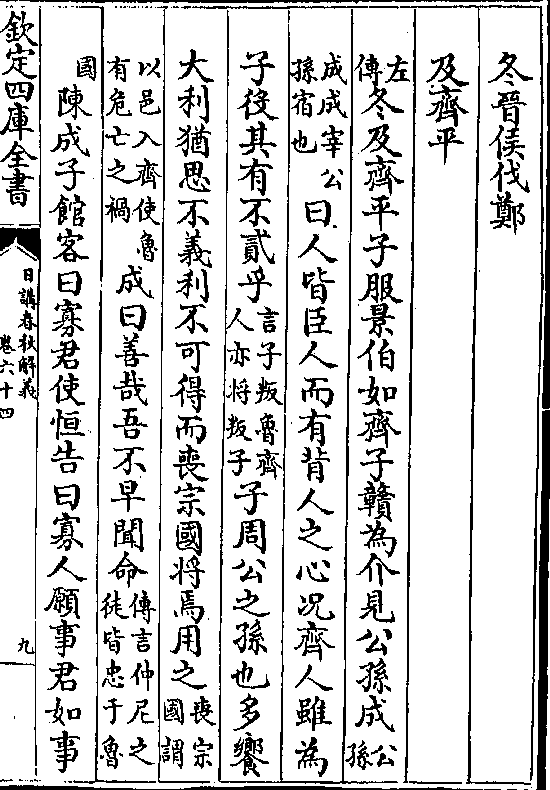 冬晉侯伐鄭
及齊平
左傳冬及齊平子服景伯如齊子贛為介見公孫成公孫
成成宰公孫宿也曰人皆臣人而有背人之心况齊人雖為
子役其有不貳乎言子叛魯齊人亦將叛子子周公之孫也多饗
大利猶思不義利不可得而喪宗國將焉用之喪宗國謂
以邑入齊使魯有危亡之禍成曰善哉吾不早聞命傳言仲尼之徒皆忠于魯
國陳成子館客曰寡君使恒告曰寡人願事君如事
欽定四庫全書
日講春秋解義
卷六十四
九